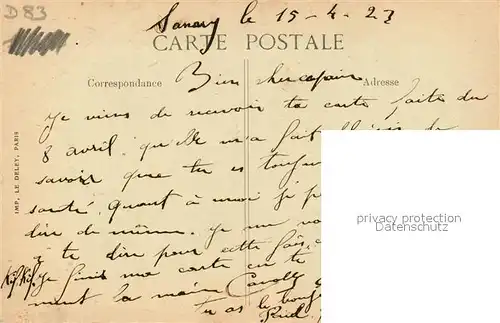 D83
Sanary le 15-4-23
CARTE POSTALE
Correspondance
Adresse
Bien cher copain
Je viens de recevoir ta carte faite du
8 avril. qu'elle m'a fait plaisir de
savoir que tu es toujou
santé. Quant à moi je p
dire de même. Je ne vo
à te dire pour cette fois,
Je finis ma carte en te
ment la main
tu as le
IMP. LE DELEY, PARIS
privacy protection
www.delcampe.net